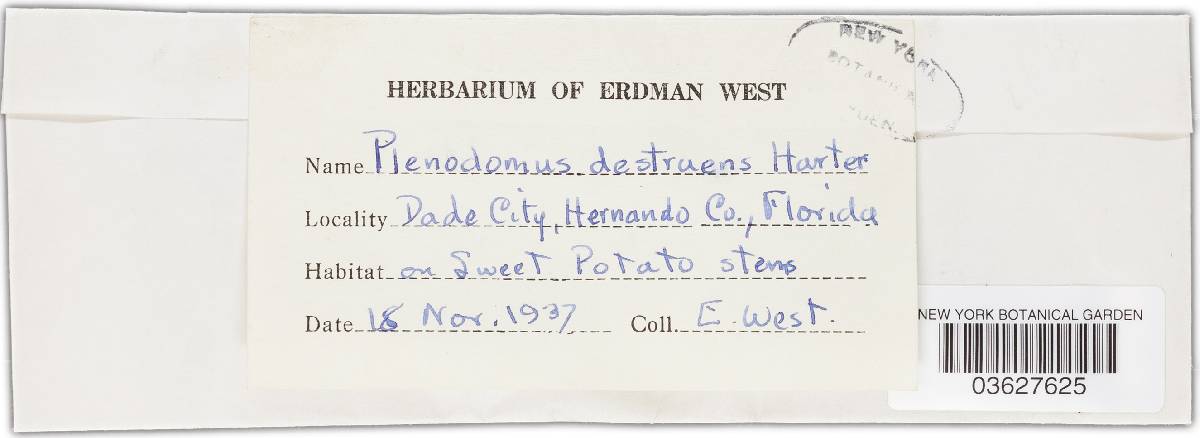 NEW YORK
BOTANICAL
HERBARIUM OF ERDMAN WEST
Name Plenodomus destruens Harter
Locality Dade City, Hernando Co., Florida
Habitat on Sweet Potato stems
Date 18 Nov. 1937 Coll. E. West.
NEW YORK BOTANICAL GARDEN
03627625